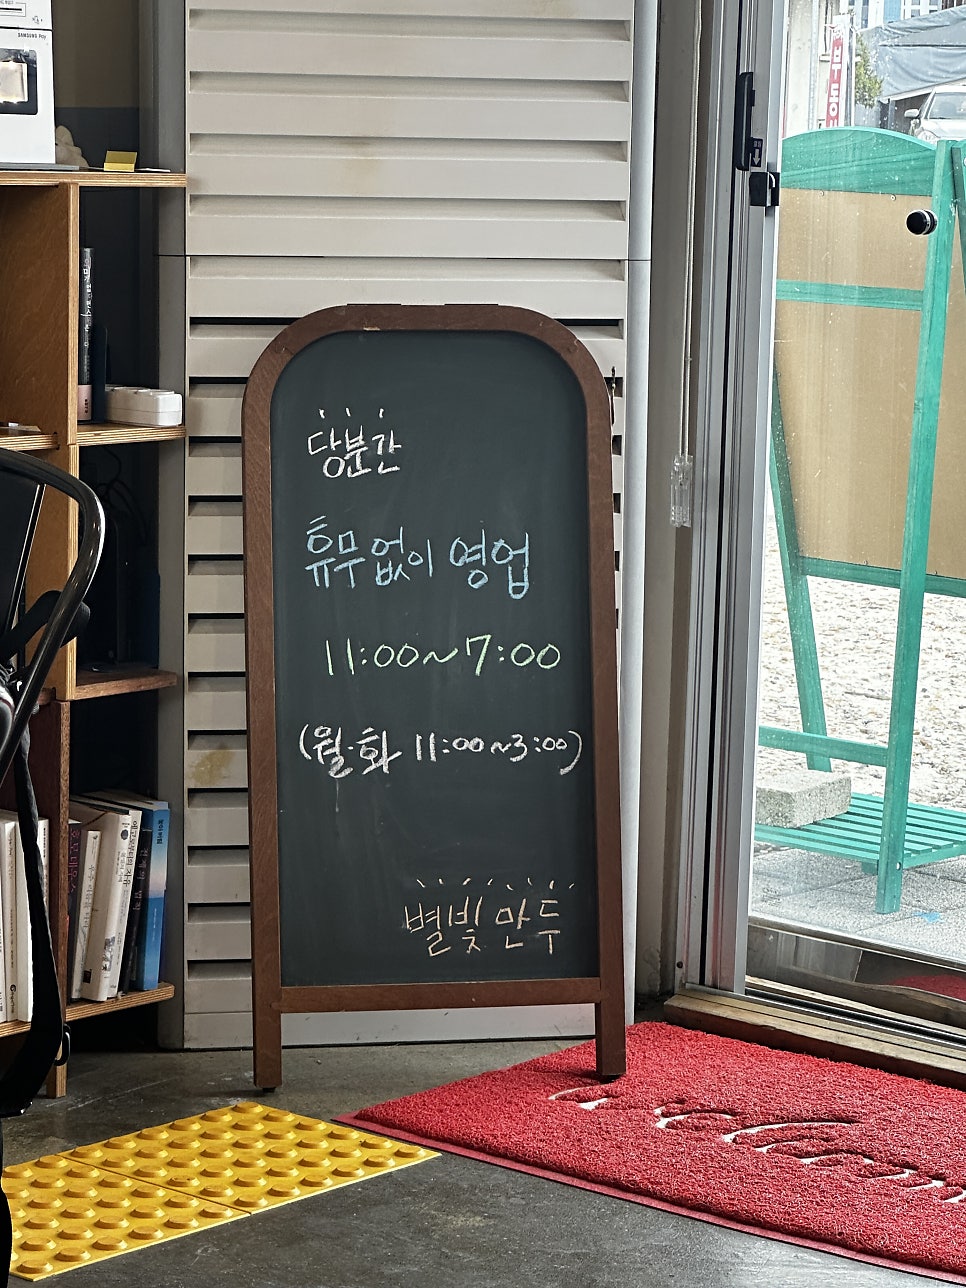 SAMSUNG Pay
당분간
휴무없이 영업
11:00~7:00
(월·화 11:00~3:00)
별빛 만두
Welcome